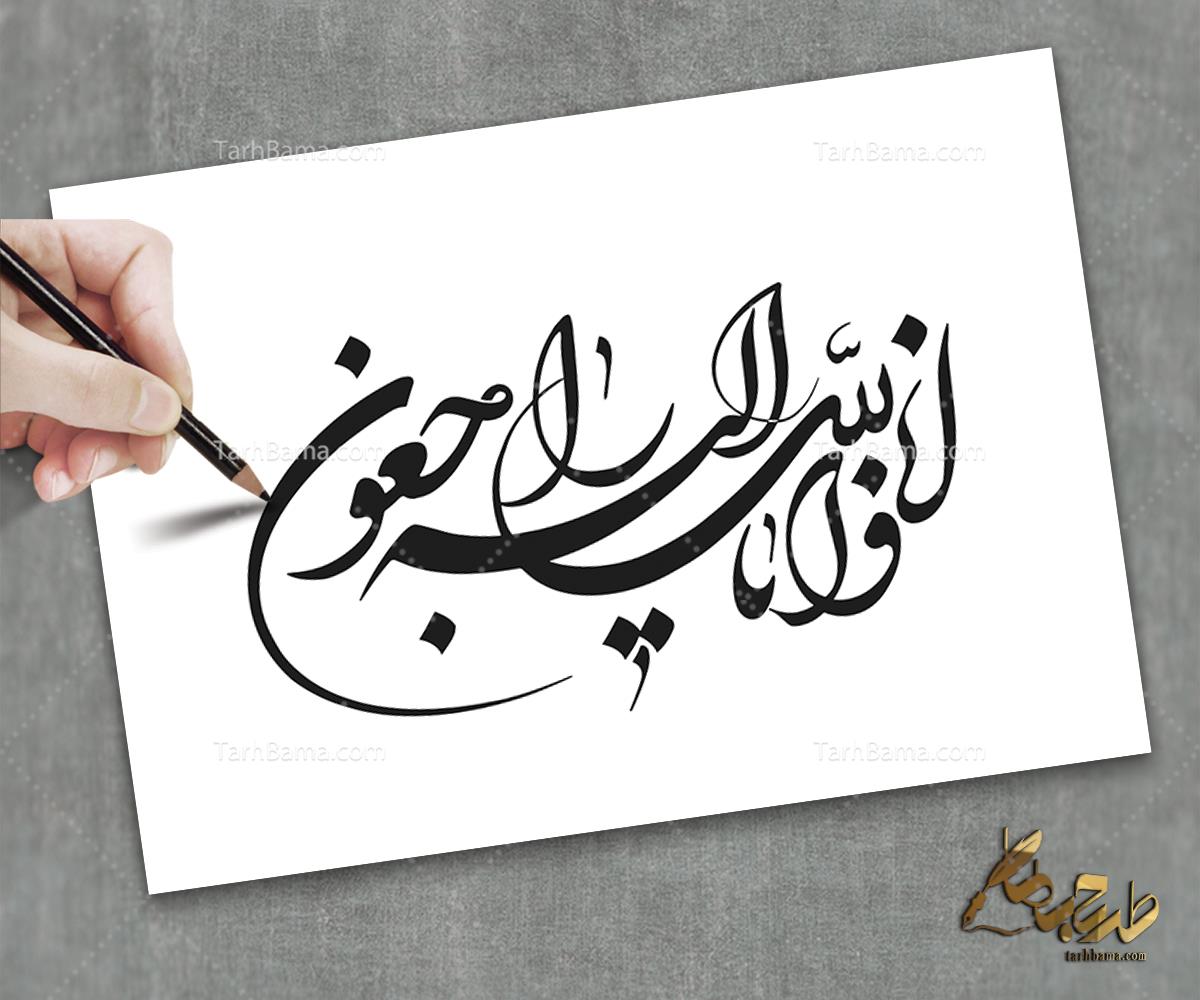 انا لله و انا الیه راجعون
TarhBama.com TarhBama.com
TarhBama.com TarhBama.com
TarhBama.com TarhBama.com
طرح باما
tarhbama.com